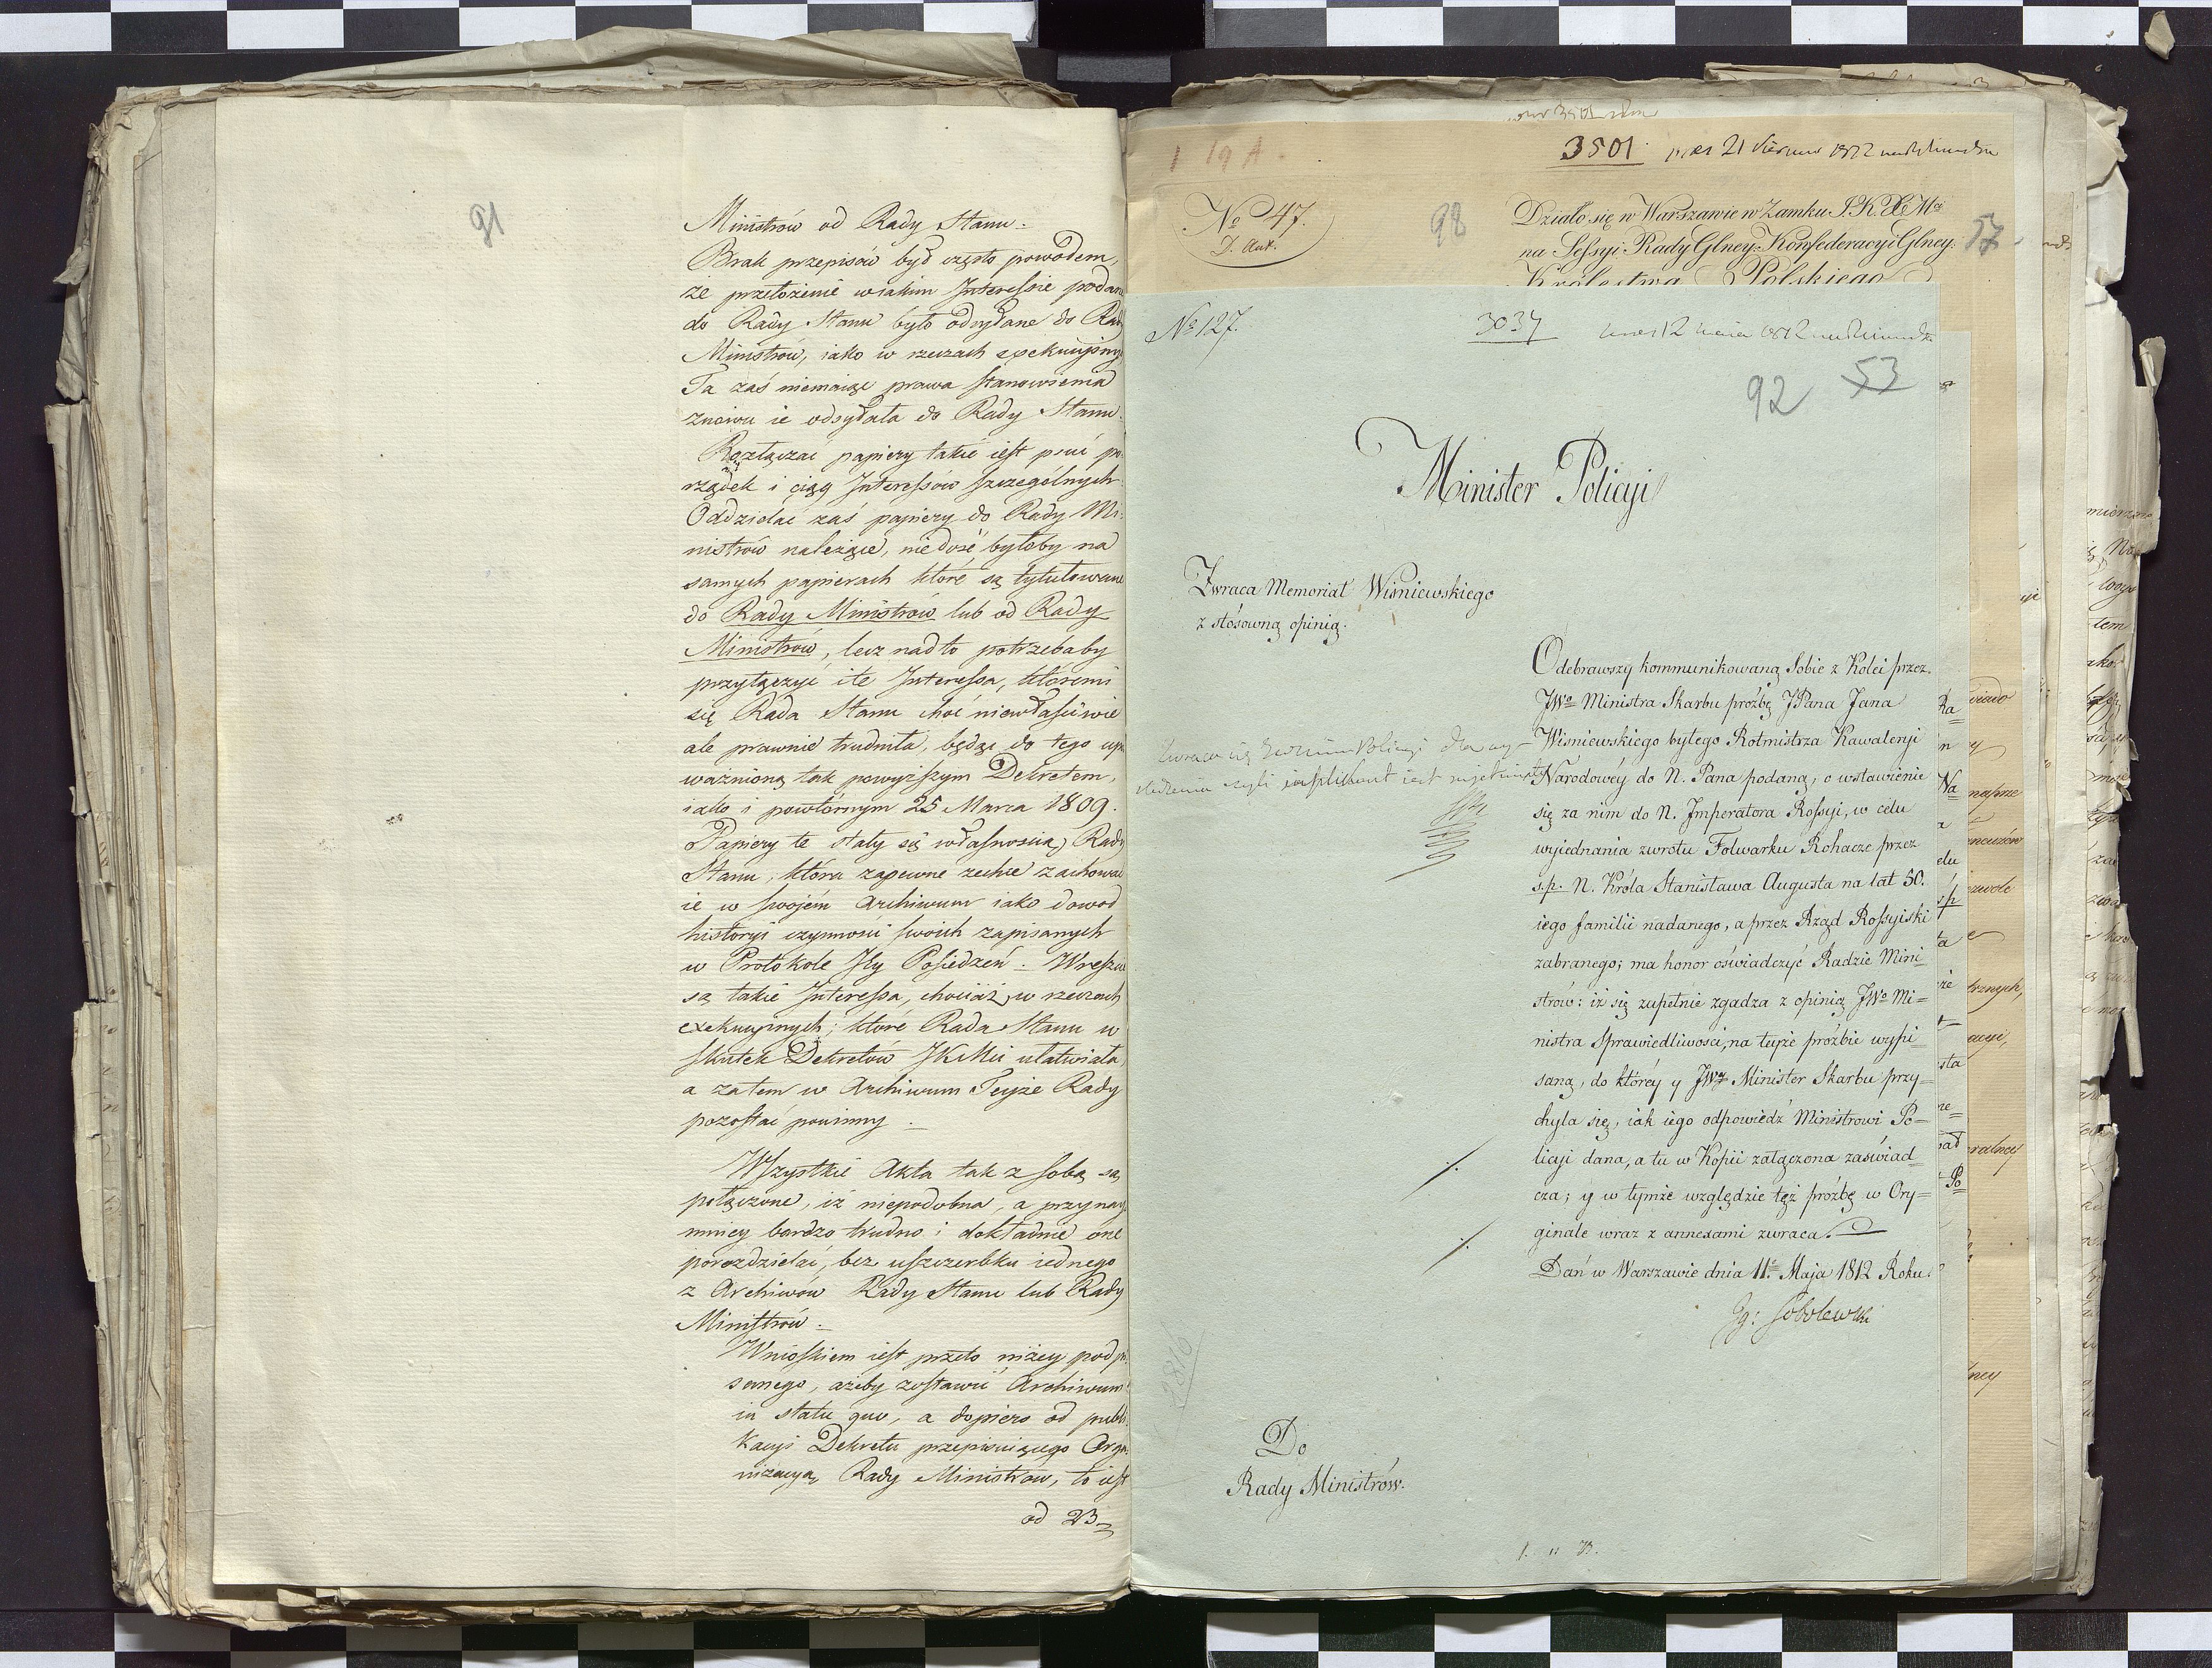 91
Ministrów od Rady Stanu.
Brak przepisów był często powodem,
że przełożenie w iakim Interessie podane
do Rady Stanu było odsyłane do Rady
Ministrów, iako w rzeczach exekucyjnych
Ta zaś niemaiąc prawa stanowienia
znowu ie odsyłała do Rady Stanu.
Rozłączać papiery takie iest psuć po-
rządek i ciąg Interessów szczególnych.
Oddzielać zaś papiery do Rady Mi-
nistrów należące, niedość byłoby na
samych papierach które są tytułowane
do Rady Ministrów lub od Rady
Ministrów, lecz nadto potrzebaby
przyłączyć i te Interessa, któremi
się Rada Stanu choć niewłaściwie
ale prawnie trudniła, będąc do tego upo
ważnioną tak powyższym Dekretem,
iako i powtórnym 25 Marca 1809.
Papiery te stały się własnością Rady
Stanu, która zapewne zechce zachować
ie w swojém Archiwum iako dowod
historyi czynności swoich zapisanych
w Protokole Jey Posiedzeń. Wreszcie
są takie Interessa, chociaż w rzeczach
exekucyjnych, które Rada Stanu w
skutek Dekretów JKMci ułatwiała,
a zatem w Archiwum Teyże Rady
pozostać powinny.
Wszystkie Akta tak z sobą są
połączone, iż niepodobna, a przynay
mniey bardzo trudno i dokładnie one
porozdzielać, bez uszczerbku iednego
z Archiwów Rady Stanu lub Rady
Ministrów.
Wnioskiem iest przeto niżey podpi
sanego, ażeby zostawić Archiwum
in statu quo, a dopiero od publi
kacyi Dekretu przepisuiącego Orga
nizacyą Rady Ministrów, to iest
od 23
3501 21 1812
No 47.
D. Aut.
98
Działo się w Warszawie w Zamku J.K. X Mci
na Sessyi Rady Glney Konfederacyi Glney.
57
Królestwa Polskiego
No 127.
3034 12 maia 1812
92 53
Minister Policyi
Zwraca Memoriał Wisniewskiego
z stósowną opinią.
Odebrawszy kommunikowaną Sobie z Kolei przez
JWo Ministra Skarbu próżbę JPana Jana
Wisniewskiego byłego Rotmistrza Kawaleryi
Narodowéy do N. Pana podaną, o wstawienie
się za nim do N. Imperatora Rossyi, w celu
wyiednania zwrotu Folwarku Rohacze przez
s.p. N. Króla Stanisława Augusta na lat 50.
iego familii nadanego, a przez Rząd Rossyiski
zabranego; ma honor oświadczyć Radzie Mini-
strów: iż się zupełnie zgadza z opinią JWo Mi=
nistra Sprawiedliwosci, na teyże próżbie wypi-
saną, do któréy y JWy Minister Skarbu przy=
chyla się, iak iego odpowiedź Ministrowi Po=
licyi dana, a tu w Kopii załączona zaświad-
cza; y w tymże względzie téż próżbę w Ory=
ginale wraz z annexami zwraca.
Dań w Warszawie dnia 11o Maja 1812 Roku.
Jg: Sobolewski
Zwraca się Policyi dla wy-
śledzenia czyli suplikant iest
Do
Rady Ministrów.